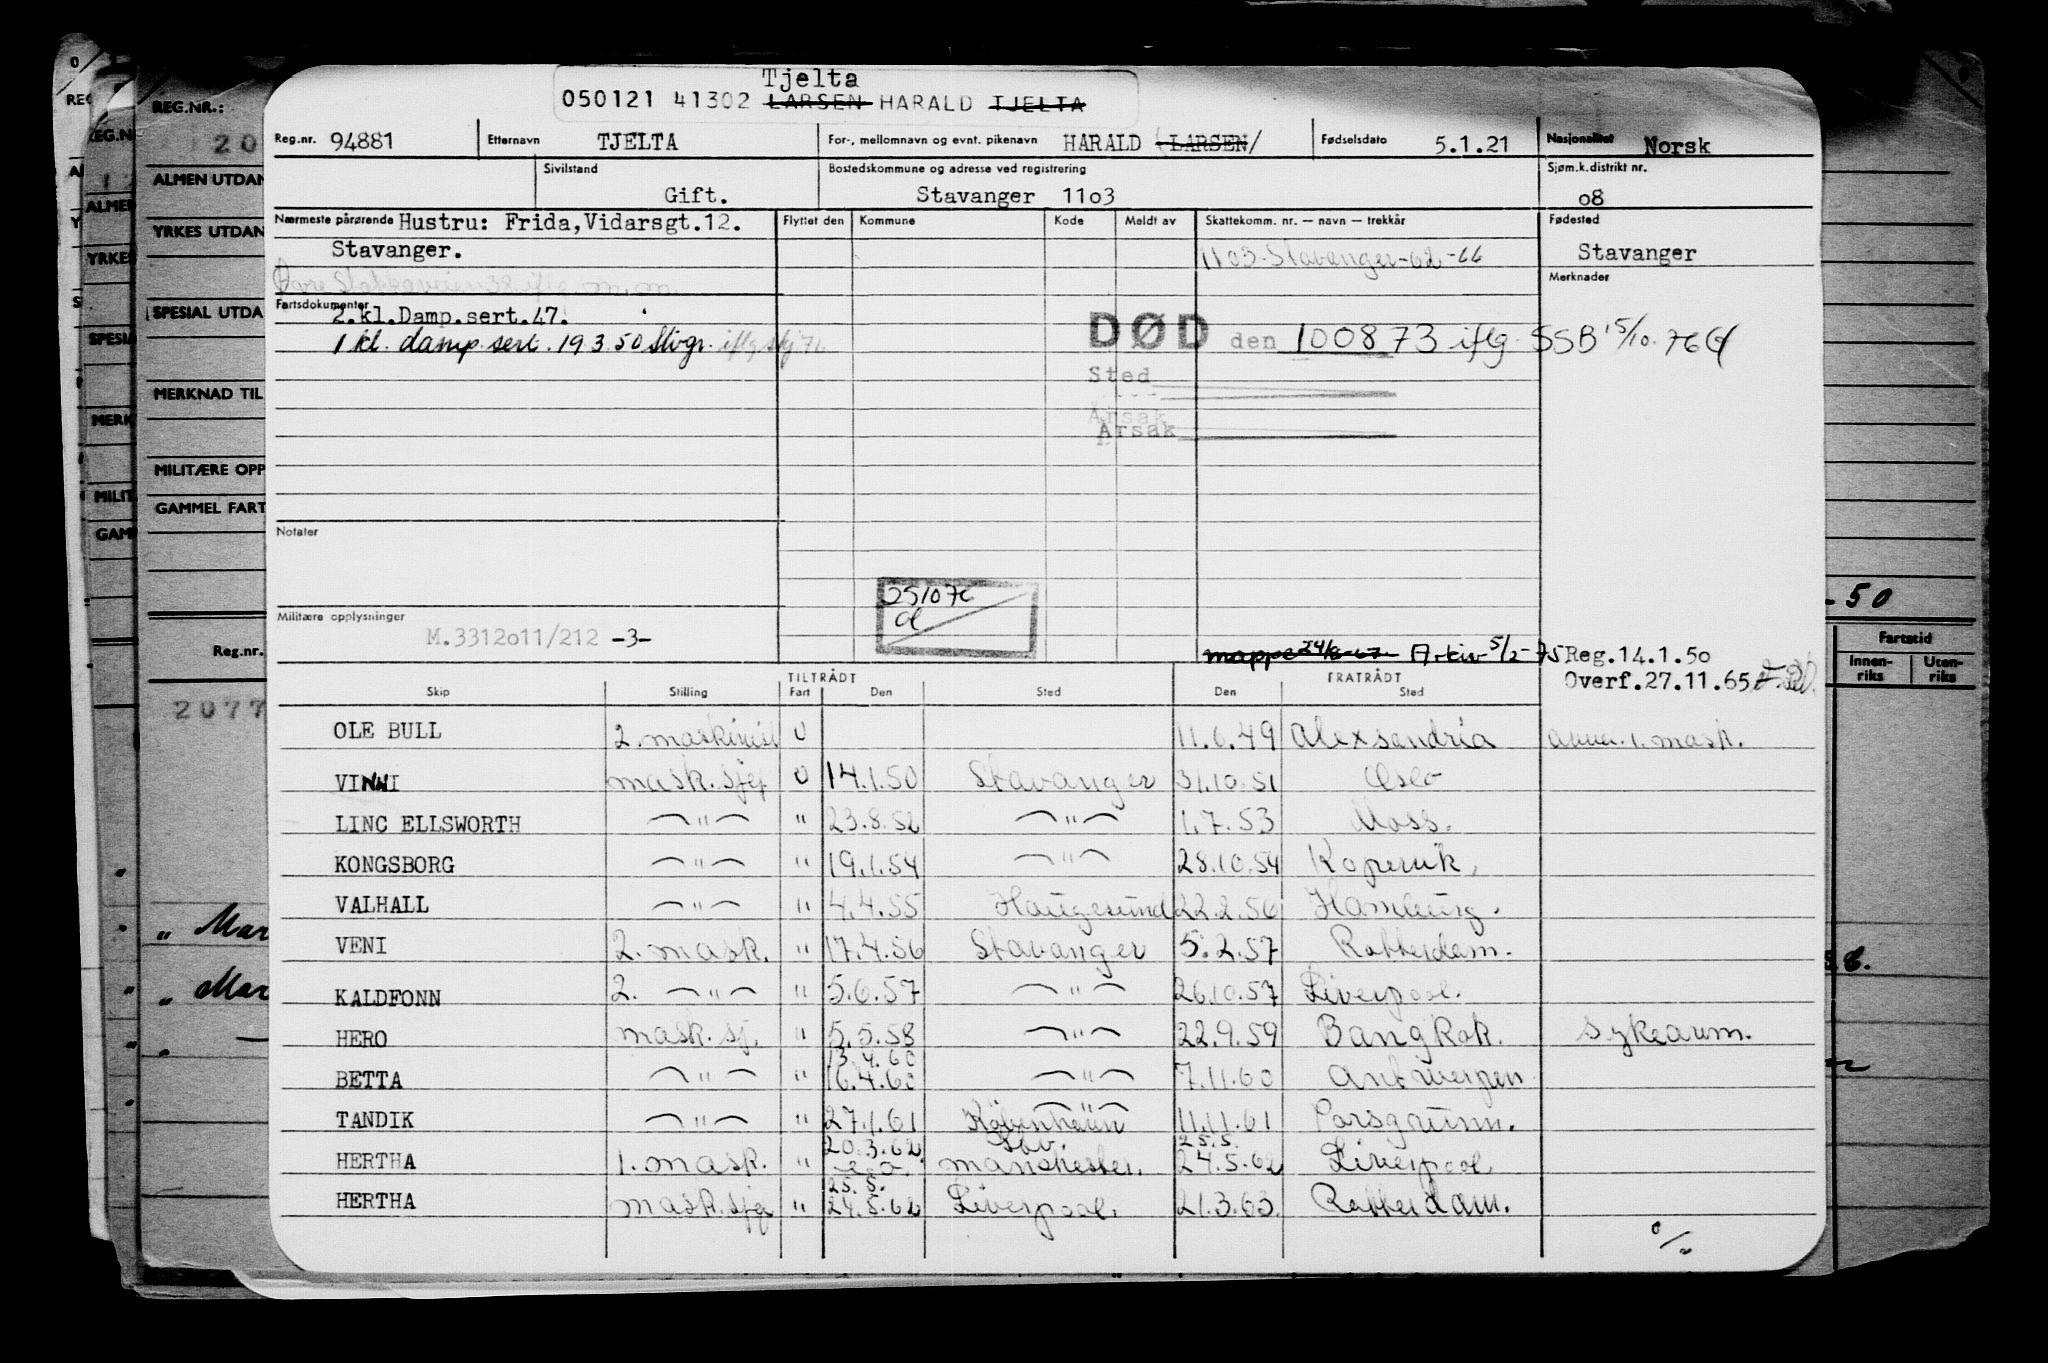 Tjelta
050121 41302 LARSEN HARALD TJELTA
Reg.nr. 94881 Etternavn TJELTA For-, mellomnavn og evnt. pikenavn HARALD (LARSEN/ Fødselsdato 5.1.21 Nasjonalitet Norsk
Sivilstand Gift. Bostedskommune og adresse ved registrering Stavanger 11o3 Sjøm.k.distrikt nr. o8
Nærmeste pårørende Hustru: Frida,Vidarsgt.12. Flyttet den Kommune Kode Meldt av Skattekomm. nr. — navn — trekkår Fødested
Stavanger. 1103-Stavanger-62-66 Stavanger
Merknader
Fartsdokumenter
2.kl.Damp.sert.47.
1 kl. damp.sert. 19.3.50 Stvgr. iflg skj 71
DØD den 100873 iflg. SSB 15/10.76
Sted
Årsak
Årsak
Notater
251076
Militære opplysninger M.3312o11/212 -3-
mappe 24/8-67 Arkiv 5/2-75 Reg.14.1.50
Overf.27.11.65
TILTRÅDT FRATRÅDT
Skip Stilling Fart Den Sted Den Sted
OLE BULL 2. maskinist U 11.6.49 Alexsandria avm. 1. mask.
VINNI mask.sjef U 14.1.50 Stavanger 31.10.51 Oslo
LINC ELLSWORTH —"— " 23.8.52 —"— 1.7.53 Moss.
KONGSBORG —"— " 19.1.54 —"— 28.10.54 Kopervik,
VALHALL —"— " 4.4.55 Haugesund 22.2.56 Hamburg.
VENI 2. mask. " 17.4.56 Stavanger 5.2.57 Rotterdam.
KALDFONN 2. —"— " 5.6.57 —"— 26.10.57 Liverpool.
HERO mask.sj. " 5.5.58 —"— 22.9.59 Bangkok. sykeavm.
13.4.60
BETTA —"— " 16.4.60 —"— 7.11.60 Antwerpen
TANDIK —"— " 27.1.61 —"— København 11.11.61 Porsgrunn.
20.3.62 25.5.
HERTHA 1. mask. " Manchester. 24.5.62 Liverpool
25.5.
HERTHA mask.sjef " 24.5.62 Liverpool. 21.3.63. Rotterdam.
REG.NR.:
20
ALMEN UTDAN
YRKES UTDAN
SPESIAL UTDA
MERKNAD TIL
MILITÆRE OPP
GAMMEL FART
Reg.nr.
2077
" Mar
" Mar
"
- 50
Fartstid
Innen-riks Uten-riks